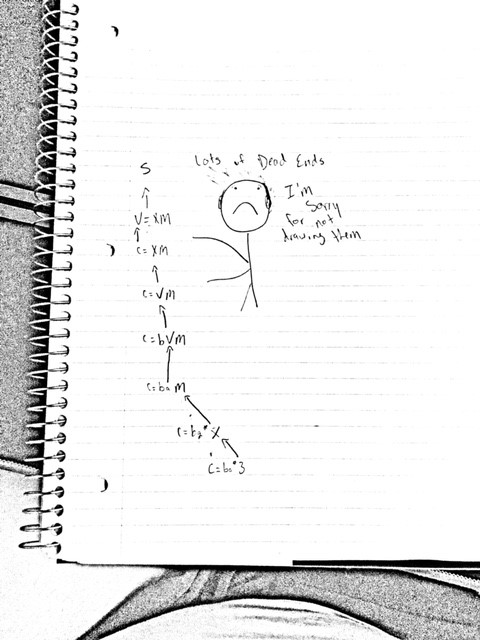 Lots of Dead Ends
S
I'm
Sorry
for not
drawing them
V=XM
C=XM
C=VM
C=bVM